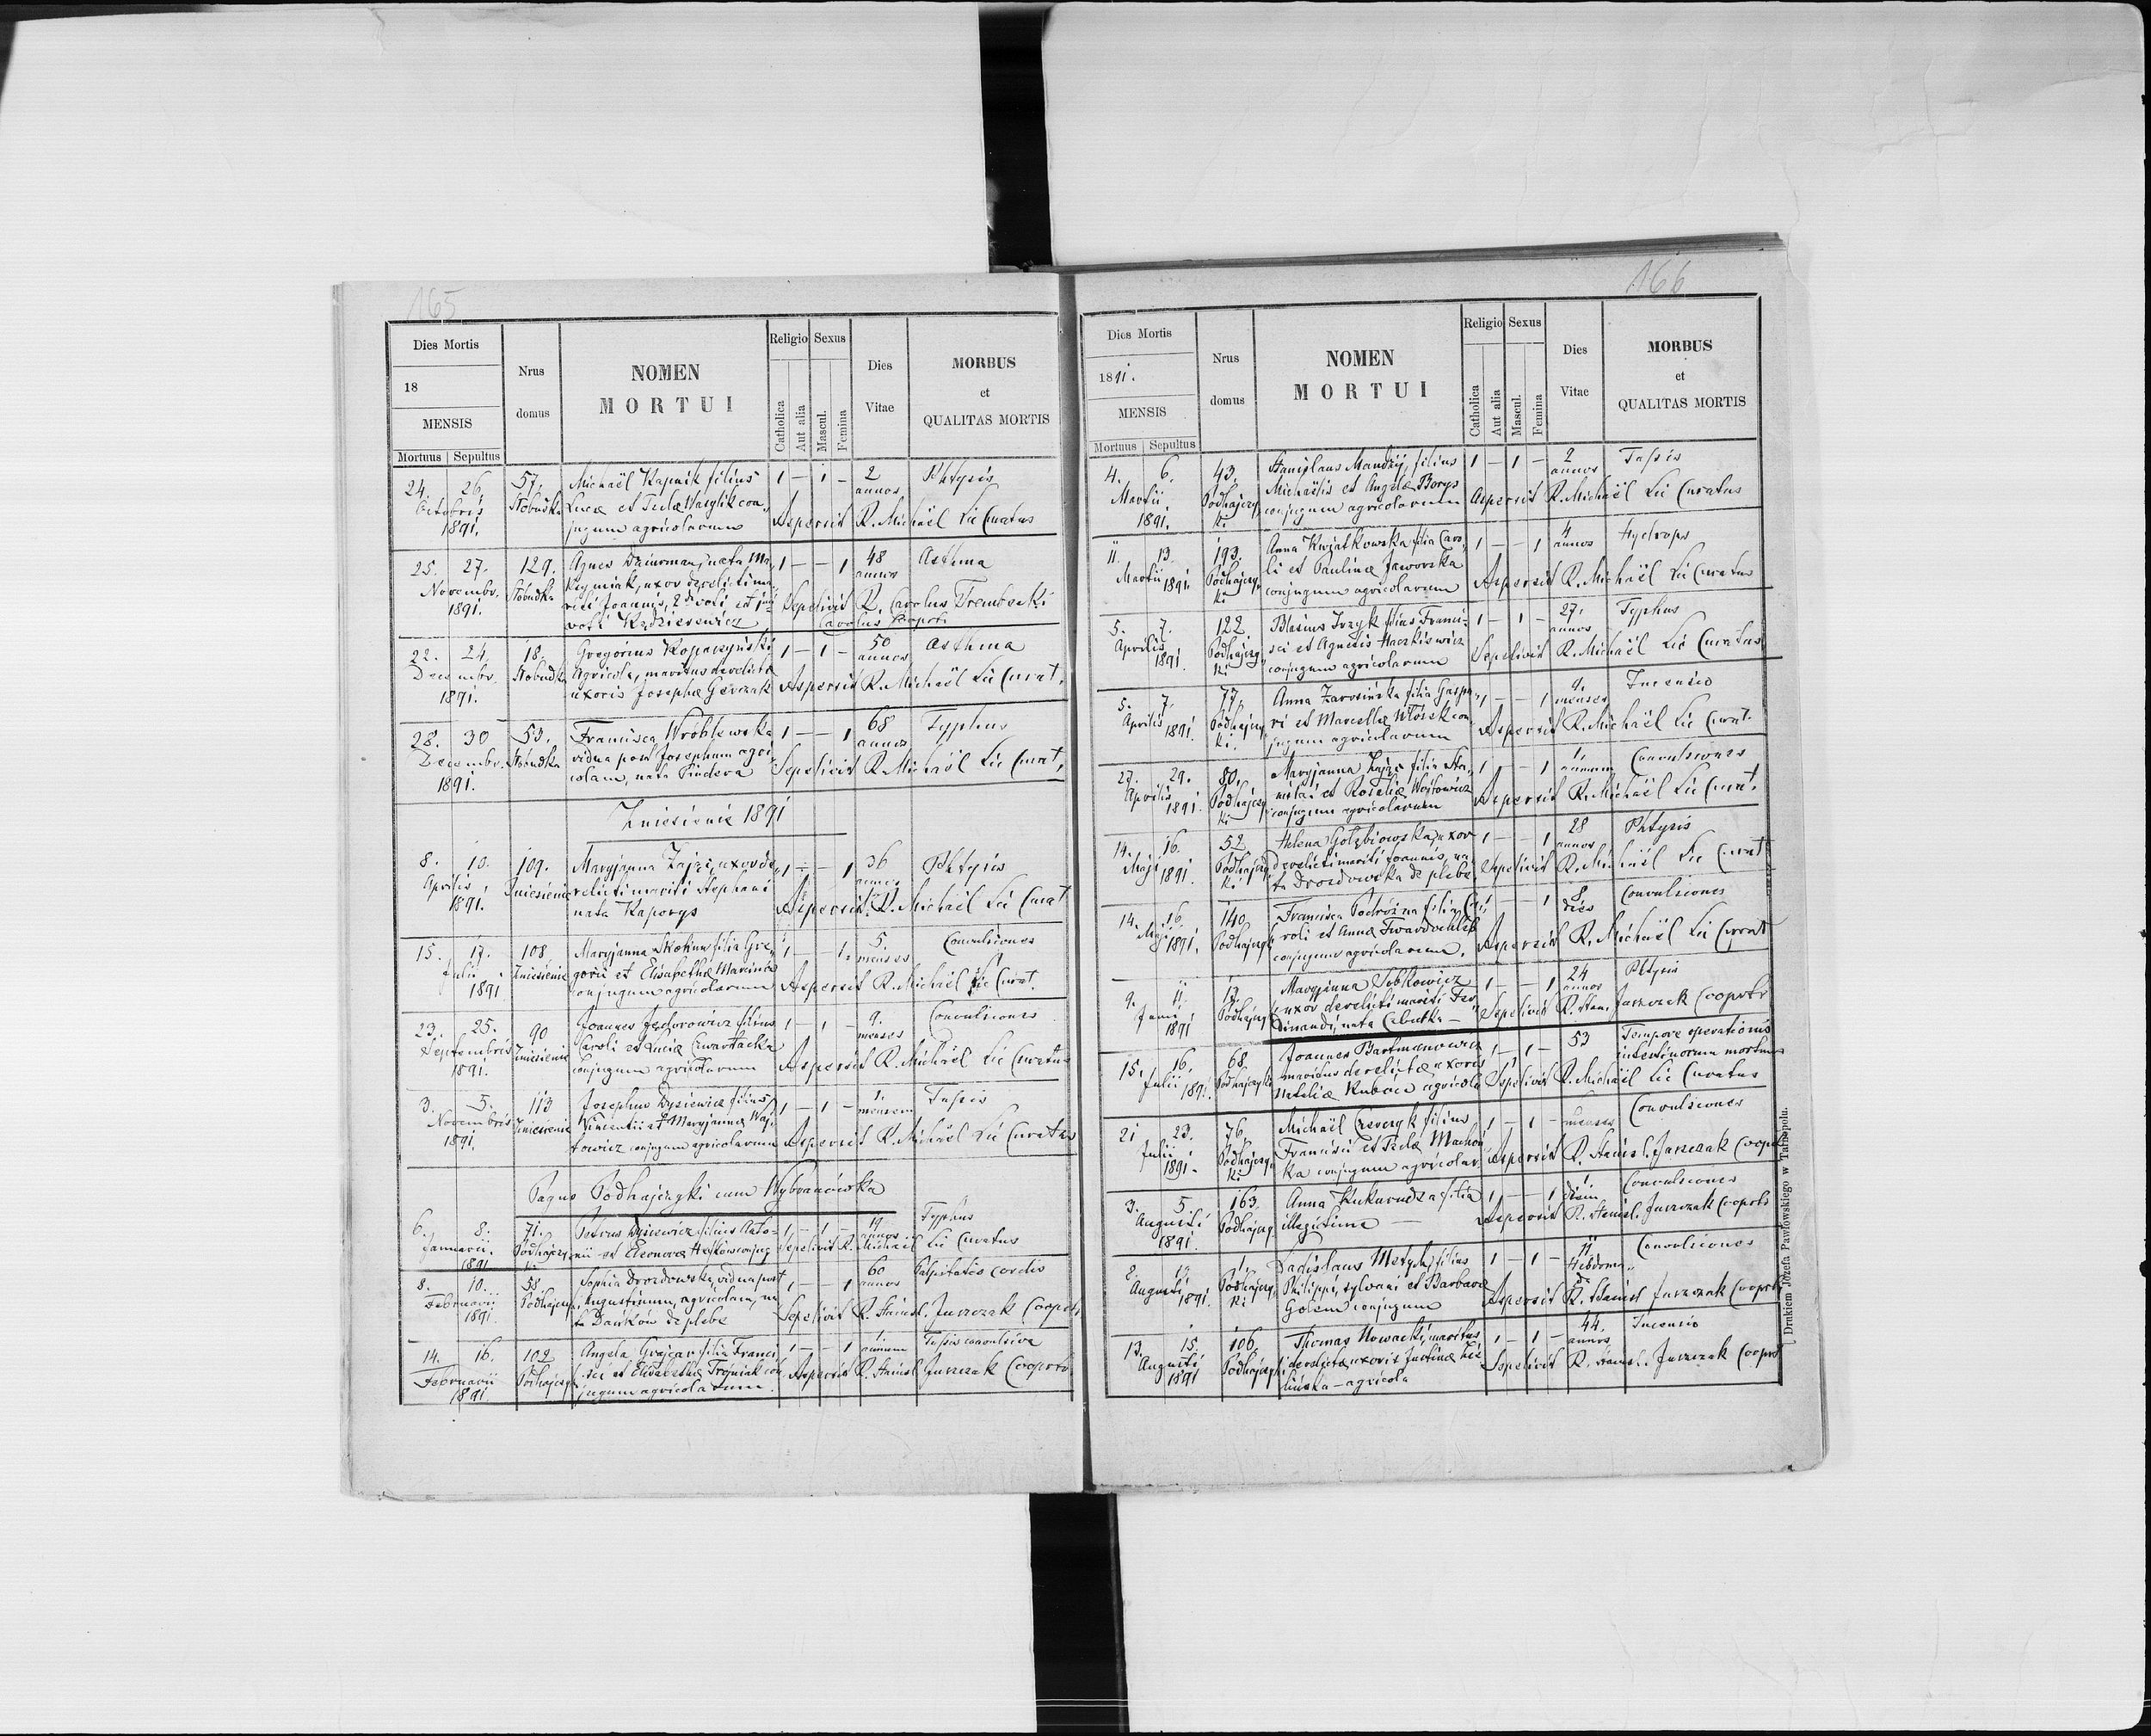 165
Dies Mortis
18
MENSIS
Mortuus Sepultus
Nrus domus
NOMEN
MORTUI
Religio
Catholica
Aut alia
Sexus
Mascul.
Femina
Dies Vitae
MORBUS
et
QUALITAS MORTIS
24. 26 57. Michaël Kapnik filius 1 — 1 — 2 annos Phtysis
Octobris Słobudka Lucæ et Teclæ Warylik con„
1891. jugum agricolarum Aspersit R. Michaël Lic Curatus
25. 27. 129. Agnes nata Ma„ 1 — — 1 48 annos Asthma
Novembr. Słobudka uxor derelicti ma„
1891. riti Joannis, 2di voti et
voti Kędzierewicz Sepelivit R. Carolus Trembecki
Carolus
22. 24. 18. Gregorius Kopaczyński 1 — 1 — 50 annos Asthma
Decembr. Słobudka Agricola, maritus derelictæ
1891. uxoris Josephæ Gerczak Aspersit R. Michaël Lic Curat.
28. 30 53. Francisca Wróblewska 1 — — 1 68 annos Typhus
Decembr. Słobudka vidua post Josephum agri„
1891. colam, nata Pindera Sepelivit R. Michaël Lic Curat.
Zniesienie 1891
8. 10. 109. Maryjanna Zając, uxor de„ 1 — — 1 36 annos Phtysis
Aprilis Zniesienie relicti mariti Stephani
1891. nata Kaporys Aspersit R. Michaël Lic Curat
15. 17. 108 Maryjanna Skokun filia Gre„ 1 — — 1. 5. menses Convulsiones
Julii Zniesienie gorii et Elisabethæ Marcinów
1891 conjugum agricolarum Aspersit R. Michaël Lic Curat.
23. 25. 90 Joannes Fedorowicz filius 1 — 1 — 9. menses Convulsiones
Septembris Zniesienie Caroli et Luciæ Czwartacka
1891. conjugum agricolarum Aspersit R. Michaël Lic Curatus
3. 5. 113 Josephus Dysiewicz filius 1 — 1 — 1. mensem Tussis
Novembris Zniesienie Vincentii et Maryjannæ Woj„
1891. towicz conjugum agricolarum Aspersit R. Michaël Lic Curatus
Pagus Podhajczyki cum Wybranówka
6. 8. 71. Petrus Dysiewicz filius Anto„ 1 — 1 — 19 annos Typhus
Januarii. Podhajczy„ nii et Eleonoræ conjug Sepelivit R. Michaël Lic Curatus
1891 ki
8. 10. 58. Sophia Drozdowska, vidua post 1 — — 1 60 annos Palpitatio cordis
Februarii Podhajczy. Augustinum, agricolam, na„
1891. ta Danków de plebe Sepelivit R. Stanisl. Jurczak Cooprt.
14. 16. 102 Angela Grajcar filia Franci„ 1 — — 1 1. annum Tussis convulsiva
Februarii Podhajczyki sci et Elisabethæ Trojniak con„ Aspersit R. Stanisl Jurczak Cooprtr.
1891. jugum agricolarum.
166
Dies Mortis
1891.
MENSIS
Mortuus Sepultus
Nrus domus
NOMEN
MORTUI
Religio
Catholica
Aut alia
Sexus
Mascul.
Femina
Dies Vitae
MORBUS
et
QUALITAS MORTIS
4. 6. 43. Stanislaus Mandzij, filius 1 — 1 — 2 annos Tussis
Martii Podhajczy„ Michaëlis et Angelæ Borys
1891. ki conjugum agricolarum Aspersit R. Michaël Lic Curatus
11. 13. 193. Anna Kwiatkowska filia Caro„ 1 — — 1 4 annos Hydrops
Martii Podhajczy„ li et Paulinæ Jaworska
1891. ki conjugum agricolarum Aspersit R. Michaël Lic Curatus
5. 7. 122 Blasius filius Franci„ 1 — 1 — 27. annos Typhus
Aprilis Podhajczy„ sci et Agnetis Haczkiewicz
1891. ki conjugum agricolarum Sepelivit R. Michaël Lic Curatus
5. 7. 77. Anna Zarosińska filia Gaspa„ 1 — — 1 9. menses Incensio
Aprilis Podhajczy„ ri et Marcellæ Włósek con„
1891. ki. jugum agricolarum Aspersit R. Michaël Lic Curat.
27. 29. 80. Maryjanna Zając filia Sta„ 1 — — 1 1. annum Convulsiones
Aprilis Podhajczy„ nislai et Rosaliæ Wojtowicz
1891. ki conjugum agricolarum Aspersit R. Michaël Lic Curat.
14. 16. 52 Helena Gołębiowska, uxor 1 — — 1 28 annos Phtysis
Maji Podhajczy„ derelicti mariti Joannis, na„
1891. ki ta Drozdowska de plebe, Sepelivit R. Michaël Lic Curat
14. 16. 140 Francisca Podrózna filia Ca„ 1 — — 1 8 dies Convulsiones
Maji Podhajczyk roli et Annæ Twardochleb
1891. conjugum agricolarum. Aspersit R. Michaël Lic Curat
9. 11. 13. Maryjanna Sobkowicz 1 — — 1 24 annos Phtysis
Junii Podhajczyk uxor derelicti mariti Fer„
1891 dinandi, nata Cebulka — Sepelivit R. Stan. Jurczak Cooprtr
15. 16. 68. Joannes Bartmanowicz 1 — 1 — 53 Tempore operationis
Julii Podhajczyki maritus derelictæ uxoris intestinorum mortuus
1891. Nataliæ agricola Sepelivit R. Michaël Lic Curatus
21 23. 76. Michaël filius 1 — 1 — menses Convulsiones
Julii Podhajczy„ Francisci et Teclæ
1891. ki ka conjugum agricolar. Aspersit R. Stanisl. Jurczak Cooprt
3. 5. 163. Anna Kukurudza filia 1 — — 1 1 diem Convulsiones
Augusti Podhajczy illegitima — Aspersit R. Stanisl. Jurczak Cooprtr
1891.
1. Ladislaus filius 1 — 1 — 11 Hebdoma„ Convulsiones
Augusti Podhajczy„ Philippi, sylvani et Barbaræ
1891. ki Golem conjugum Aspersit R. Stanisl Jurczak Cooprtr
13. 15. 106. Thomas Nowacki, maritus 1 — 1 — 44. annos Incensio
Augusti Podhajczyki derelictæ uxoris Justinæ Zie„
1891 lińska — agricola Sepelivit R. Stanisl. Jurczak Cooprt
Drukiem Józefa Pawłowskiego w Tarnopolu.